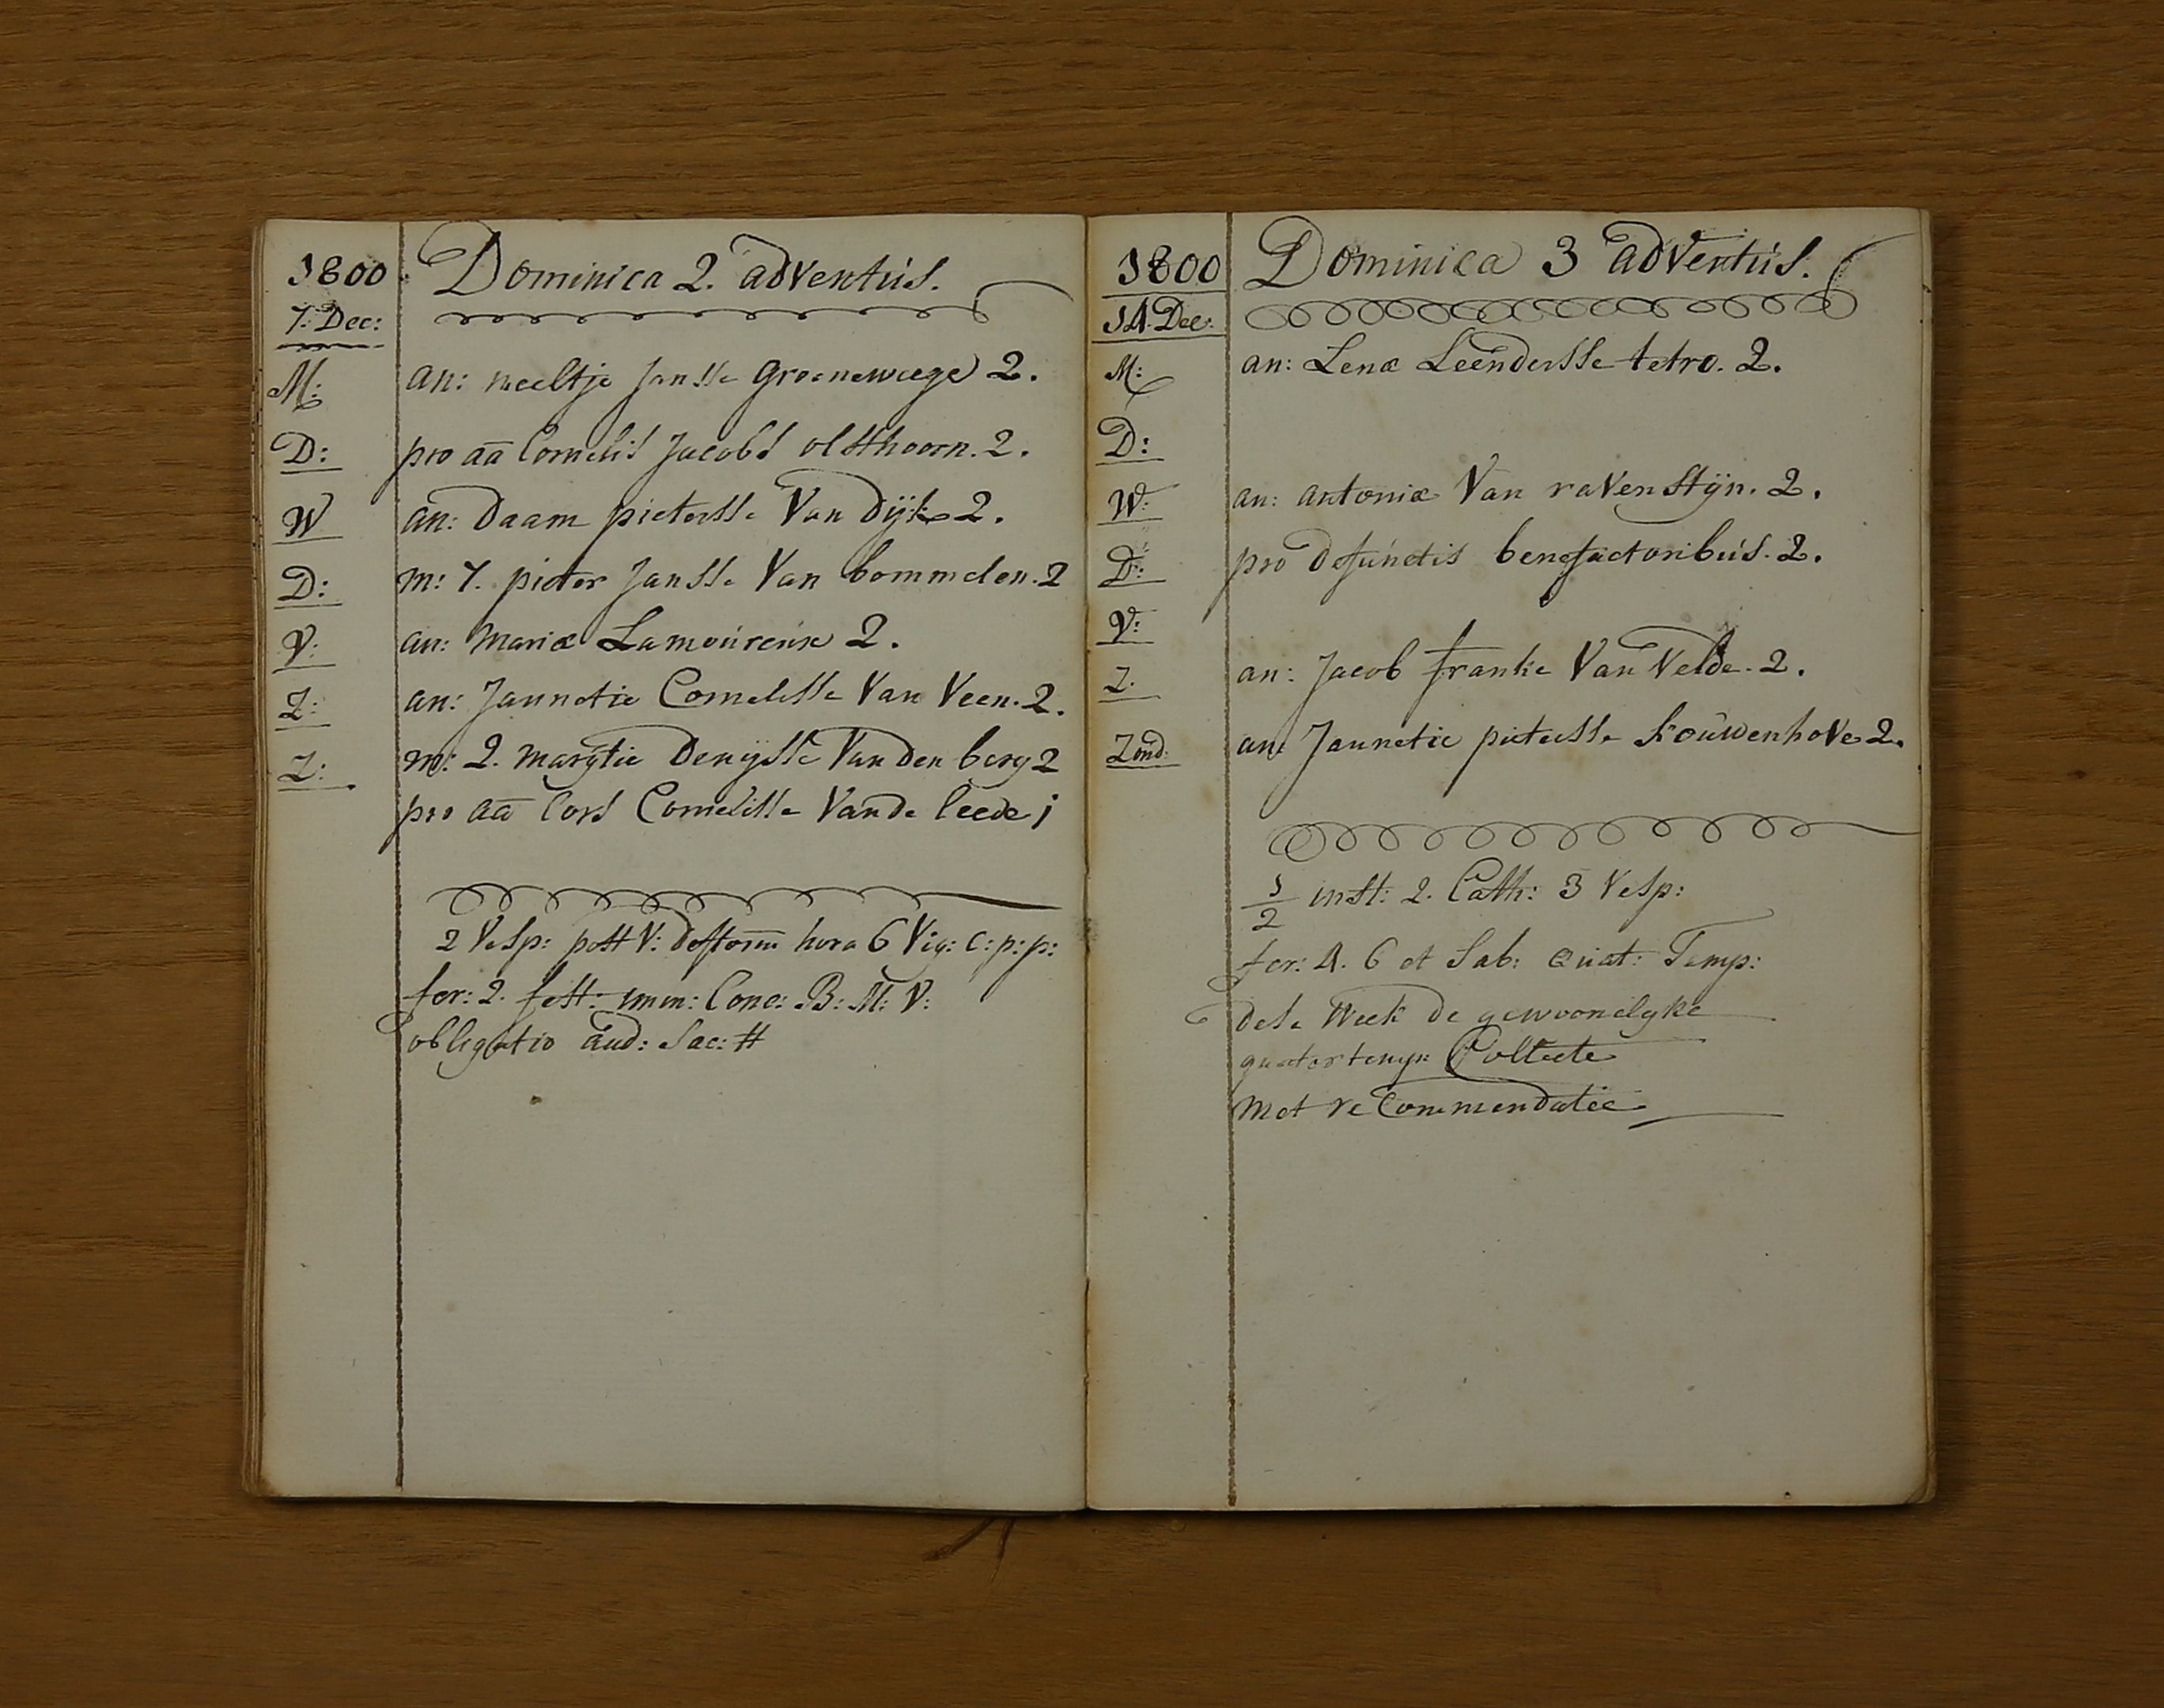 1800 Dominica 2. adventus.
7: Dec:
M: an: neeltje Jansse Groeneweege 2.
D: pro aā Cornelis Jacobs olsthoorn. 2.
W an: Daam pietersse Van Dijk 2.
D: m: 7. pieter Jansse Van bommelen. 2
V: an: Mariæ Lamoureux 2.
Z: an: Jannetie Cornelisse Van Veen. 2.
Z: m: 2. marijtie Denijsse Van den berg 2
pro aā Cors Cornelisse Vande leede j
2 Vesp: post V: deftorum hora 6 Vig: c: p: p:
fer: 2. fest: imm: Conc: B: M: V:
obligatio aud: Sac: #
1800 Dominica 3 adventus.
14. Dec:
M: an: Lenæ Leendersse tetro. 2.
D:
W: an: antoniæ Van ravenstijn. 2.
D: pro defunctis benefactoribus. 2.
V:
Z. an: Jacob franke Van Velde. 2.
Zond: an: Jannetie pietersse kouwenhove 2.
1/2 inst: 2. Cath: 3 Vesp:
fer: 4. 6 et Sab: Quat: Temp:
dese Week de gewoonelyke
quatertemp: Collecte
met recommendatie